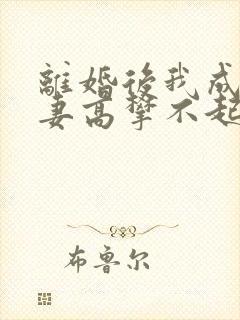 離婚後我成
妻高攀不起
布鲁尔